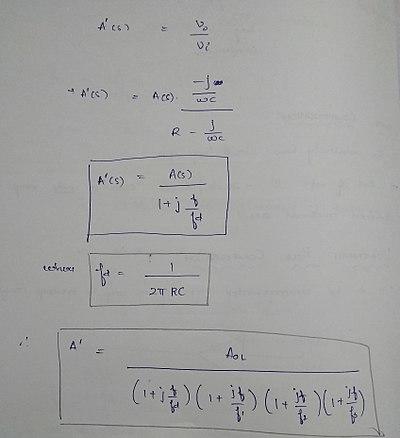 A'(s) = Vo / Vi
→ A'(s) = A(s). (-j / ωc) / (R - j / ωc)
A'(s) = A(s) / (1 + j f / fd)
where fd = 1 / 2π RC
∴ A' = AOL / (1 + j f / fd) (1 + jf / f1) (1 + jf / f2) (1 + jf / f3)